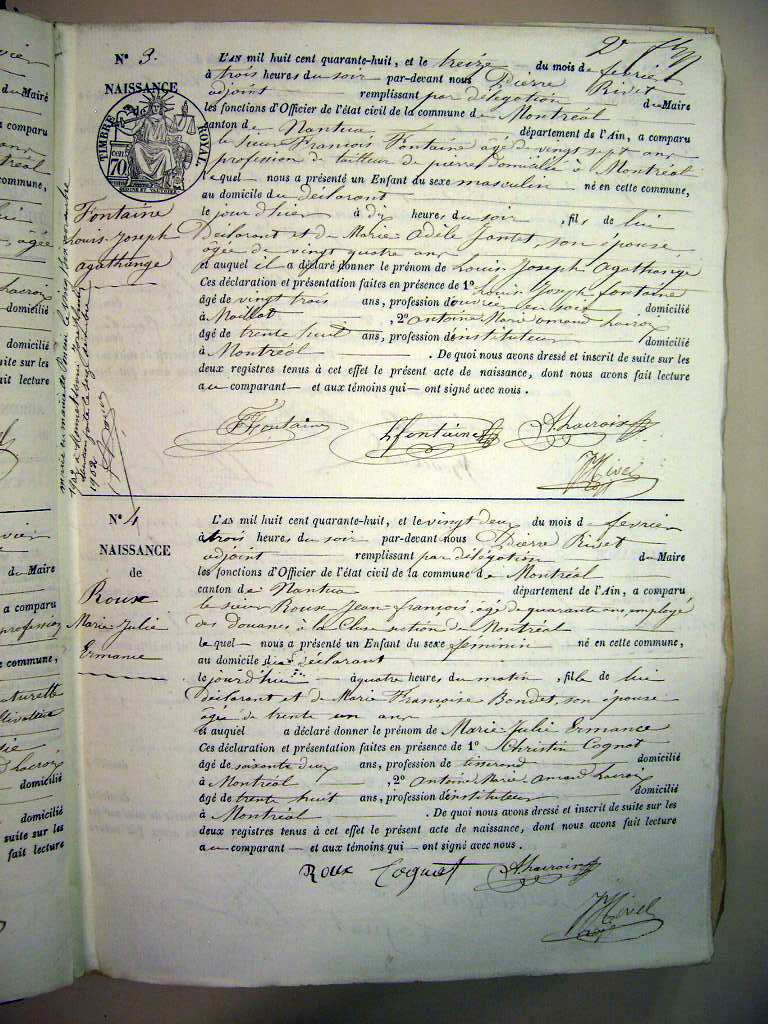 2e
N° 3.
NAISSANCE
de
TIMBRE ROYAL
70
Fontaine
Louis-Joseph
agathange
1902
L'AN mil huit cent quarante-huit, et le treize du mois de fevrier
à trois heures du soir par-devant nous Pierre Rivet
adjoint remplissant par délégation du Maire
les fonctions d'Officier de l'état civil de la commune de Montréal
canton de Nantua département de l'Ain, a comparu
le sieur François Fontaine âgé de vingt sept ans
profession de tailleur de pierre domicilié à Montréal
lequel nous a présenté un Enfant du sexe masculin né en cette commune,
au domicile du déclarant
le jour d'hier à dix heures du soir, fils de lui
Déclarant et de Marie Adèle Jantet, son épouse
âgée de vingt quatre ans
et auquel il a déclaré donner le prénom de Louis Joseph Agathange
Ces déclaration et présentation faites en présence de 1° Louis Joseph fontaine
âgé de vingt trois ans, profession d'ouvrier en soie domicilié
à Maillat, 2° antoine Marie amand Lacroix
âgé de trente huit ans, profession d'instituteur domicilié
à Montréal. De quoi nous avons dressé et inscrit de suite sur les
deux registres tenus à cet effet le présent acte de naissance, dont nous avons fait lecture
au comparant et aux témoins qui ont signé avec nous.
F Fontaine L fontaine A Lacroix
Rivet
N° 4
NAISSANCE
de
Roux
Marie-Julie
Ermance
L'AN mil huit cent quarante-huit, et le vingt deux du mois de fevrier
à trois heures du soir par-devant nous Pierre Rivet
adjoint remplissant par délégation du Maire
les fonctions d'Officier de l'état civil de la commune de Montréal
canton de Nantua département de l'Ain, a comparu
le sieur Roux Jean-françois, âgé de quarante ans, employé
des Douanes à la Cluse section de Montréal
lequel nous a présenté un Enfant du sexe feminin né en cette commune,
au domicile du déclarant
le jourd'hui à quatre heures du matin, fille de lui
Déclarant et de Marie Françoise Bondet, son épouse
âgée de trente un ans
et auquel a déclaré donner le prénom de Marie-Julie Ermance
Ces déclaration et présentation faites en présence de 1° Christin Cognat
âgé de soixante deux ans, profession de tisserand domicilié
à Montréal, 2° Antoine Marie amand Lacroix
âgé de trente huit ans, profession d'instituteur domicilié
à Montréal. De quoi nous avons dressé et inscrit de suite sur les
deux registres tenus à cet effet le présent acte de naissance, dont nous avons fait lecture
au comparant et aux témoins qui ont signé avec nous.
Roux Cognat A Lacroix
Rivet